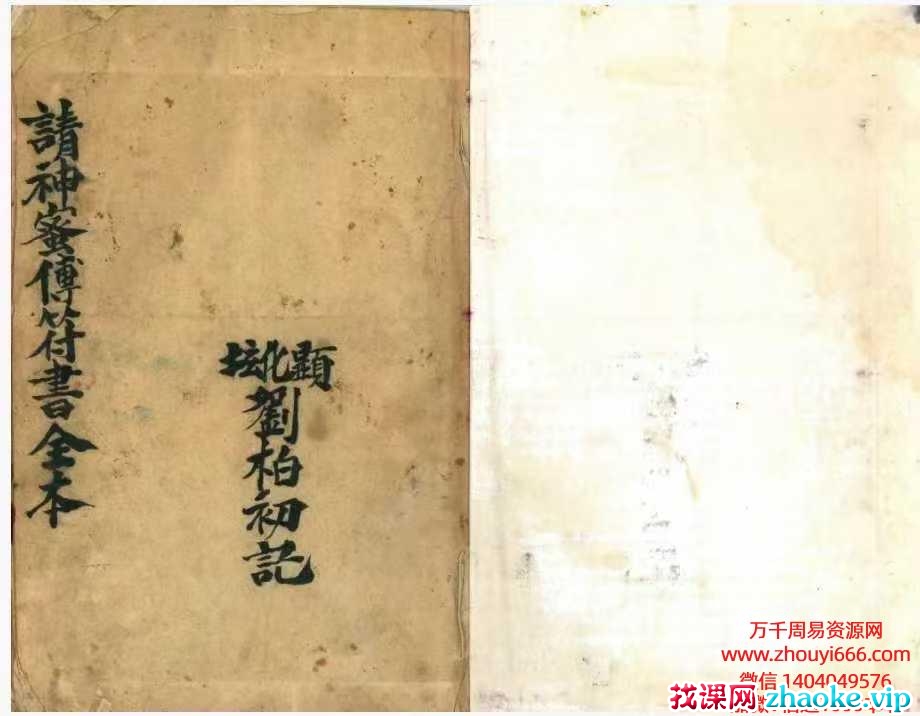 請神蜜傅符書全本
顕化坛
劉柏初記
万千周易资源网
www.zhouyi666.com
微信 1404049576
找课网zhaoke.vip